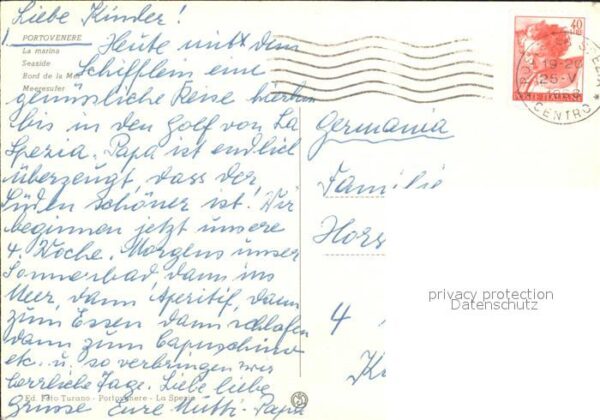 Liebe Kinder!
PORTOVENERE
La marina
Seaside
Bord de la Mer
Meeresufer
Heute mit dem
Schifflein eine
genüssliche Reise hierher
bis in den Golf von La
Spezia. Papa ist endlich
überzeugt, dass der
Süden schöner ist! Wir
beginnen jetzt unsere
4. Woche. Morgens unser
Sonnenbad, dann ins
Meer, dann Aperitif, dann
zum Essen dann schlafen
dann zum Capuschino
etc. u. so verbringen wir
herrliche Tage. Liebe liebe
Grüsse Eure Mutti - Papa
Ed. Foto Turano - Portovenere - La Spezia
40
19-20
25-V
POSTE ITALIANE
CENTRO
Germania
Familie
Hors
4
K
privacy protection
Datenschutz